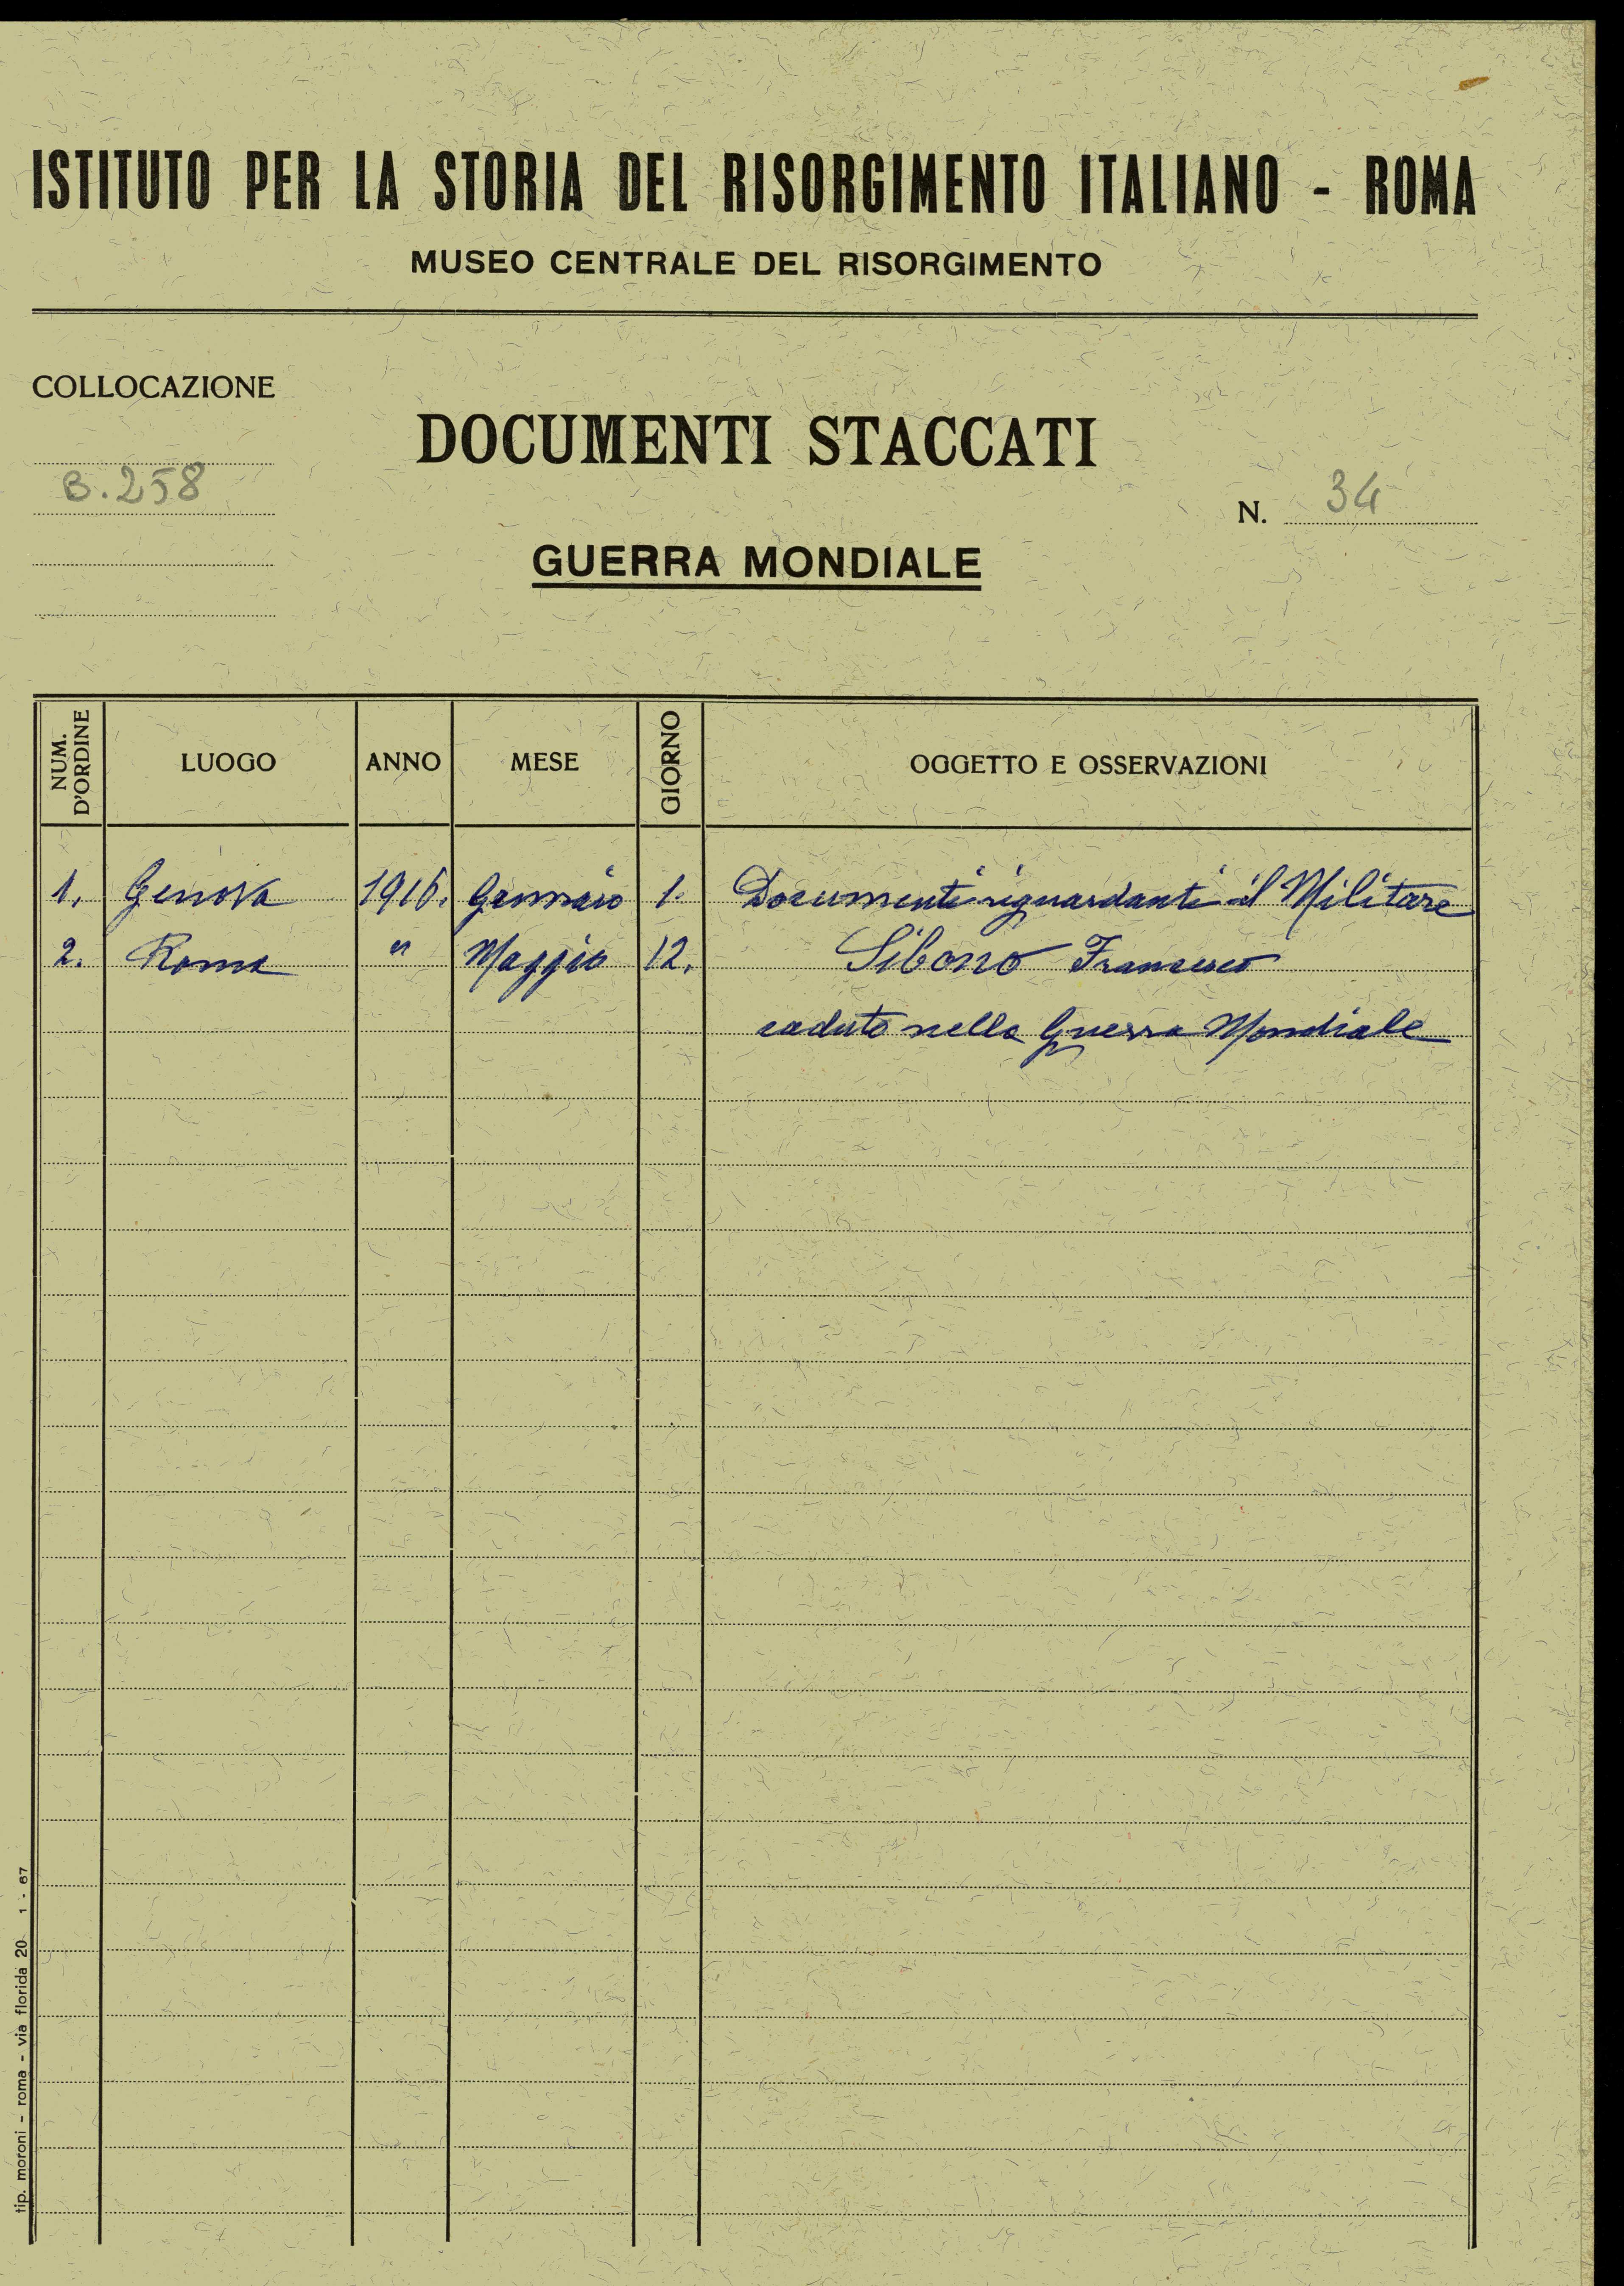 ISTITUTO PER LA STORIA DEL RISORGIMENTO ITALIANO - ROMA
MUSEO CENTRALE DEL RISORGIMENTO
COLLOCAZIONE
B. 258
DOCUMENTI STACCATI
N. 34
GUERRA MONDIALE
NUM. D'ORDINE LUOGO ANNO MESE GIORNO OGGETTO E OSSERVAZIONI
1. Genova 1916. Gennaio 1. Documenti riguardanti il Militare
2. Roma " Maggio 12. Sibono Francesco
caduto nella Guerra Mondiale
tip. moroni - roma - via florida 20 1 - 67